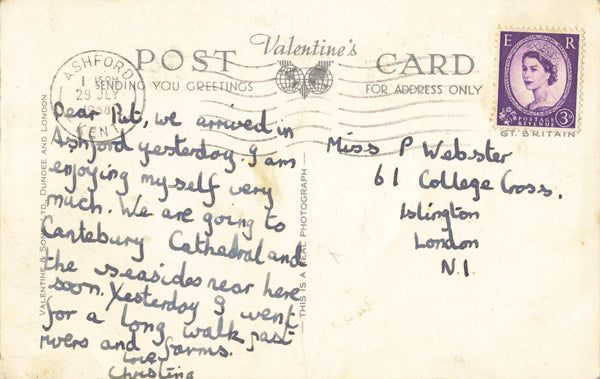 POST Valentine's CARD
SENDING YOU GREETINGS FOR ADDRESS ONLY
ASHFORD
28 JLY
1958
KENT
E R
POSTAGE
REVENUE
3D
GT. BRITAIN
Dear Pat, we arrived in
Ashford yesterday. I am
enjoying myself very
much. We are going to
Cantebury Cathedral and
the seasides near here
soon. Yesterday I went
for a long walk past
rivers and farms.
Love
Christina
VALENTINE & SONS, LTD., DUNDEE AND LONDON
— THIS IS A REAL PHOTOGRAPH —
Miss P Webster
61 College Cross.
Islington
London
N.1.